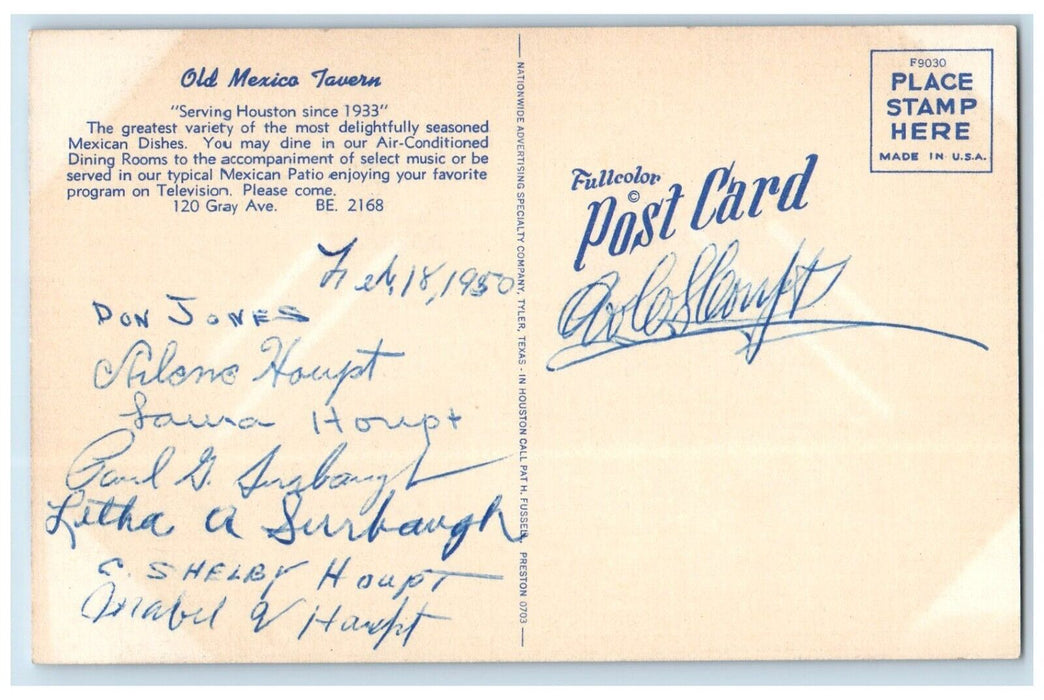 Old Mexico Tavern
"Serving Houston since 1933"
The greatest variety of the most delightfully seasoned
Mexican Dishes. You may dine in our Air-Conditioned
Dining Rooms to the accompaniment of select music or be
served in our typical Mexican Patio enjoying your favorite
program on Television. Please come.
120 Gray Ave. BE. 2168
Feb, 18, 1950
DON JONES
Arlene Houpt
Laura Houpt
Paul G. Surbaugh
Letha A Surbaugh
C. SHELBY Houpt
Mabel V Houpt
NATIONWIDE ADVERTISING SPECIALTY COMPANY, TYLER, TEXAS - IN HOUSTON CALL PAT H. FUSSELL, PRESTON 0703
F9030
PLACE
STAMP
HERE
MADE IN U.S.A.
Fullcolor
©
Post Card
Houpt